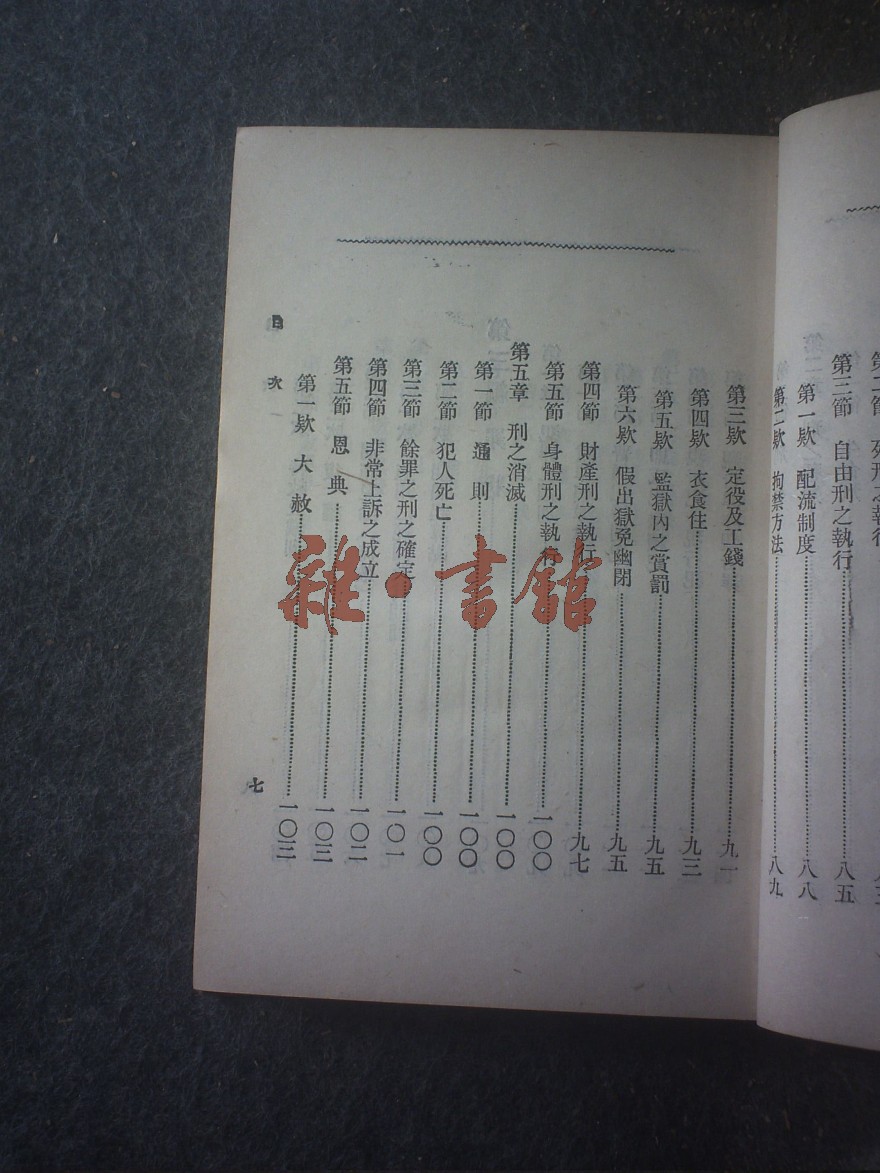 第三節 自由刑之執行 八五
第一欵 配流制度 八八
第二欵 拘禁方法 八九
第三欵 定役及工錢 九一
第四欵 衣食住 九三
第五欵 監獄內之賞罰 九五
第六欵 假出獄免幽閉 九五
第四節 財產刑之執行 九七
第五節 身體刑之執行 一〇〇
第五章 刑之消滅 一〇〇
第一節 通則 一〇〇
第二節 犯人死亡 一〇〇
第三節 餘罪之刑之確定 一〇一
第四節 非常上訴之成立 一〇二
第五節 恩典 一〇三
第一欵 大赦 一〇三
目次
七
雜·書館